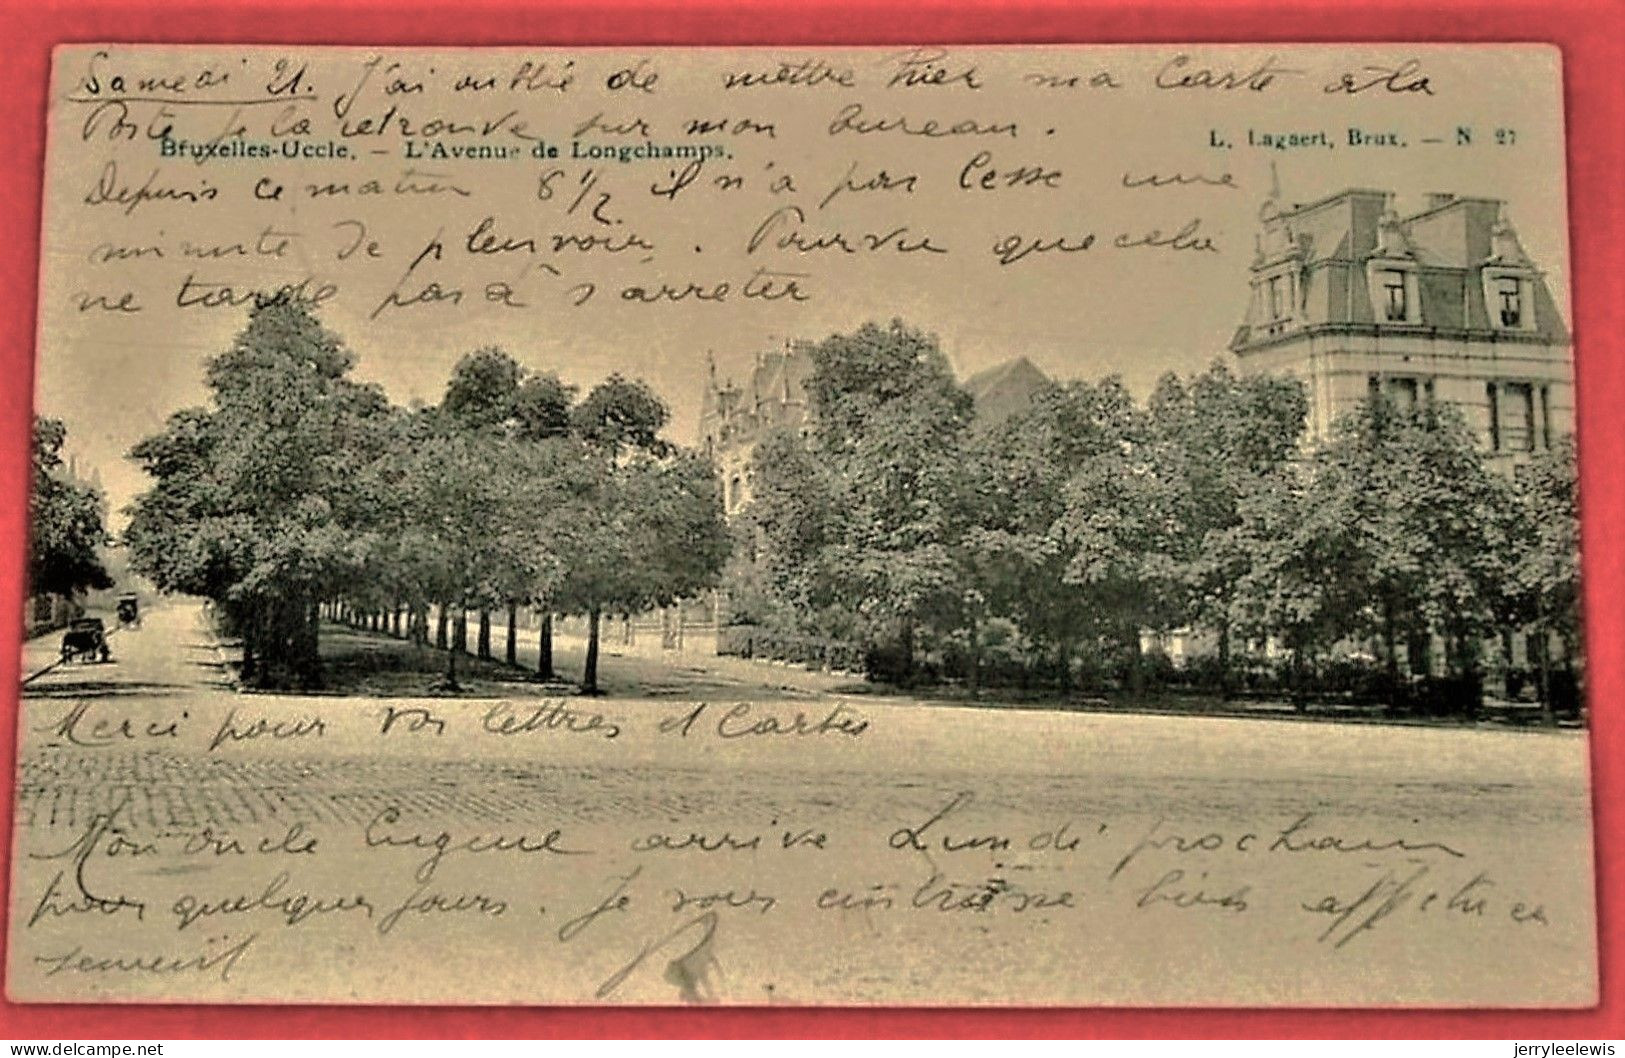 Samedi 21. J'ai oublié de mettre hier ma Carte à la
Poste je la retrouve sur mon bureau.
Bruxelles-Uccle. – L'Avenue de Longchamps.
L. Lagaert, Brux. – N 27
Depuis ce matin 8 1/2 il n'a pas cessé une
minute de pleuvoir. Pourvu que cela
ne tarde pas à s'arreter
Merci pour vos lettres et Cartes
Mon Oncle Eugene arrive Lundi prochain
pour quelques jours. Je vous embrasse bien affectueu
sement
www.delcampe.net
jerryleelewis